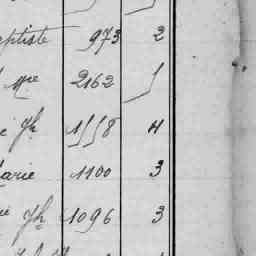 aptiste 973 2
Mie 2162 1
Jh 1558 4
Marie 1100 3
Jh 1096 3